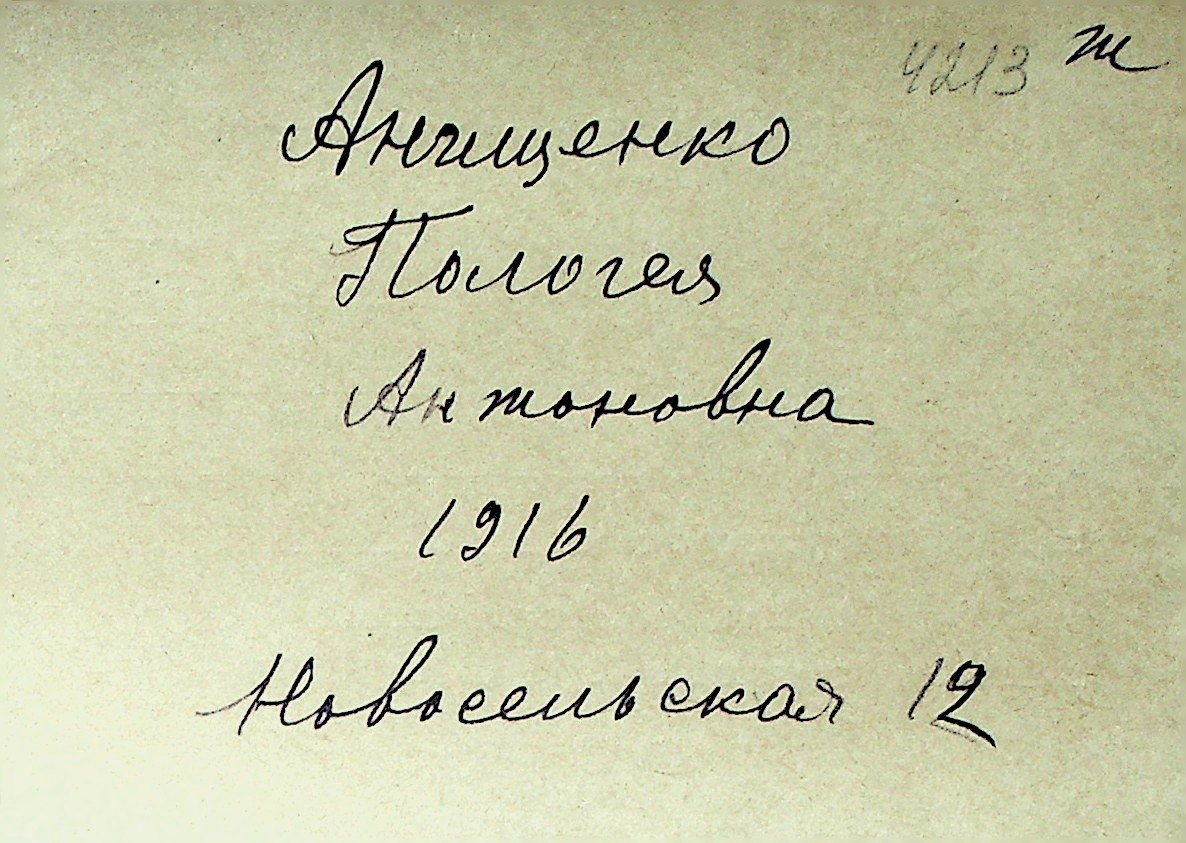 4213 т
Анищенко
Пологея
Антоновна
1916
Новосельская 12